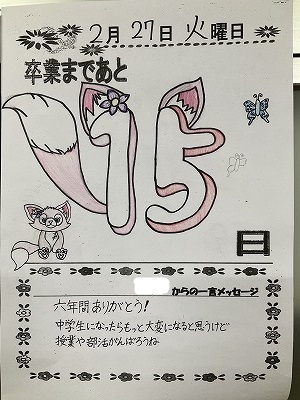 2月27日火曜日
卒業まであと
15
日
からの一言メッセージ
六年間ありがとう!
中学生になったらもっと大変になると思うけど
授業や部活がんばろうね